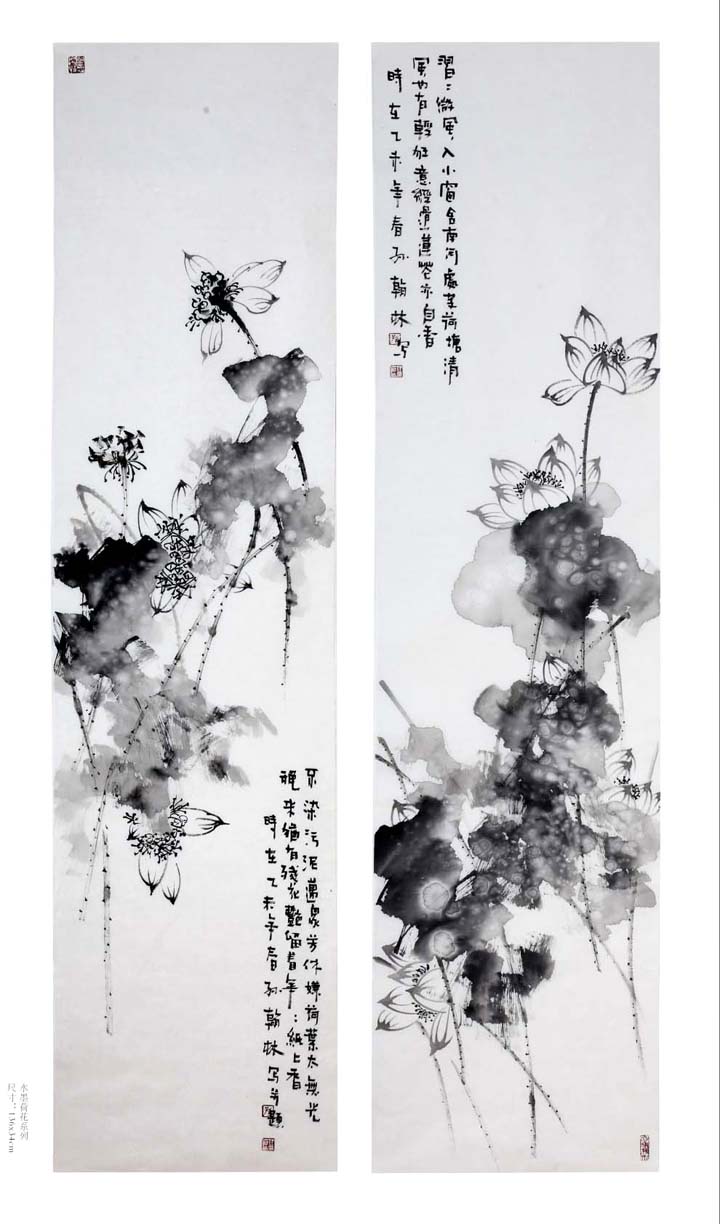 習：微風入小窗南何處荷塘清
風也有輕狂意經過蓮花亦自香
時在乙未年春孫翰林寫
不染污泥邁眾芳休嫌荷葉太無光
晚來猶有殘花艷留着年：紙上香
時在乙未年春孫翰林寫并題
水墨荷花系列
尺寸：136x34cm